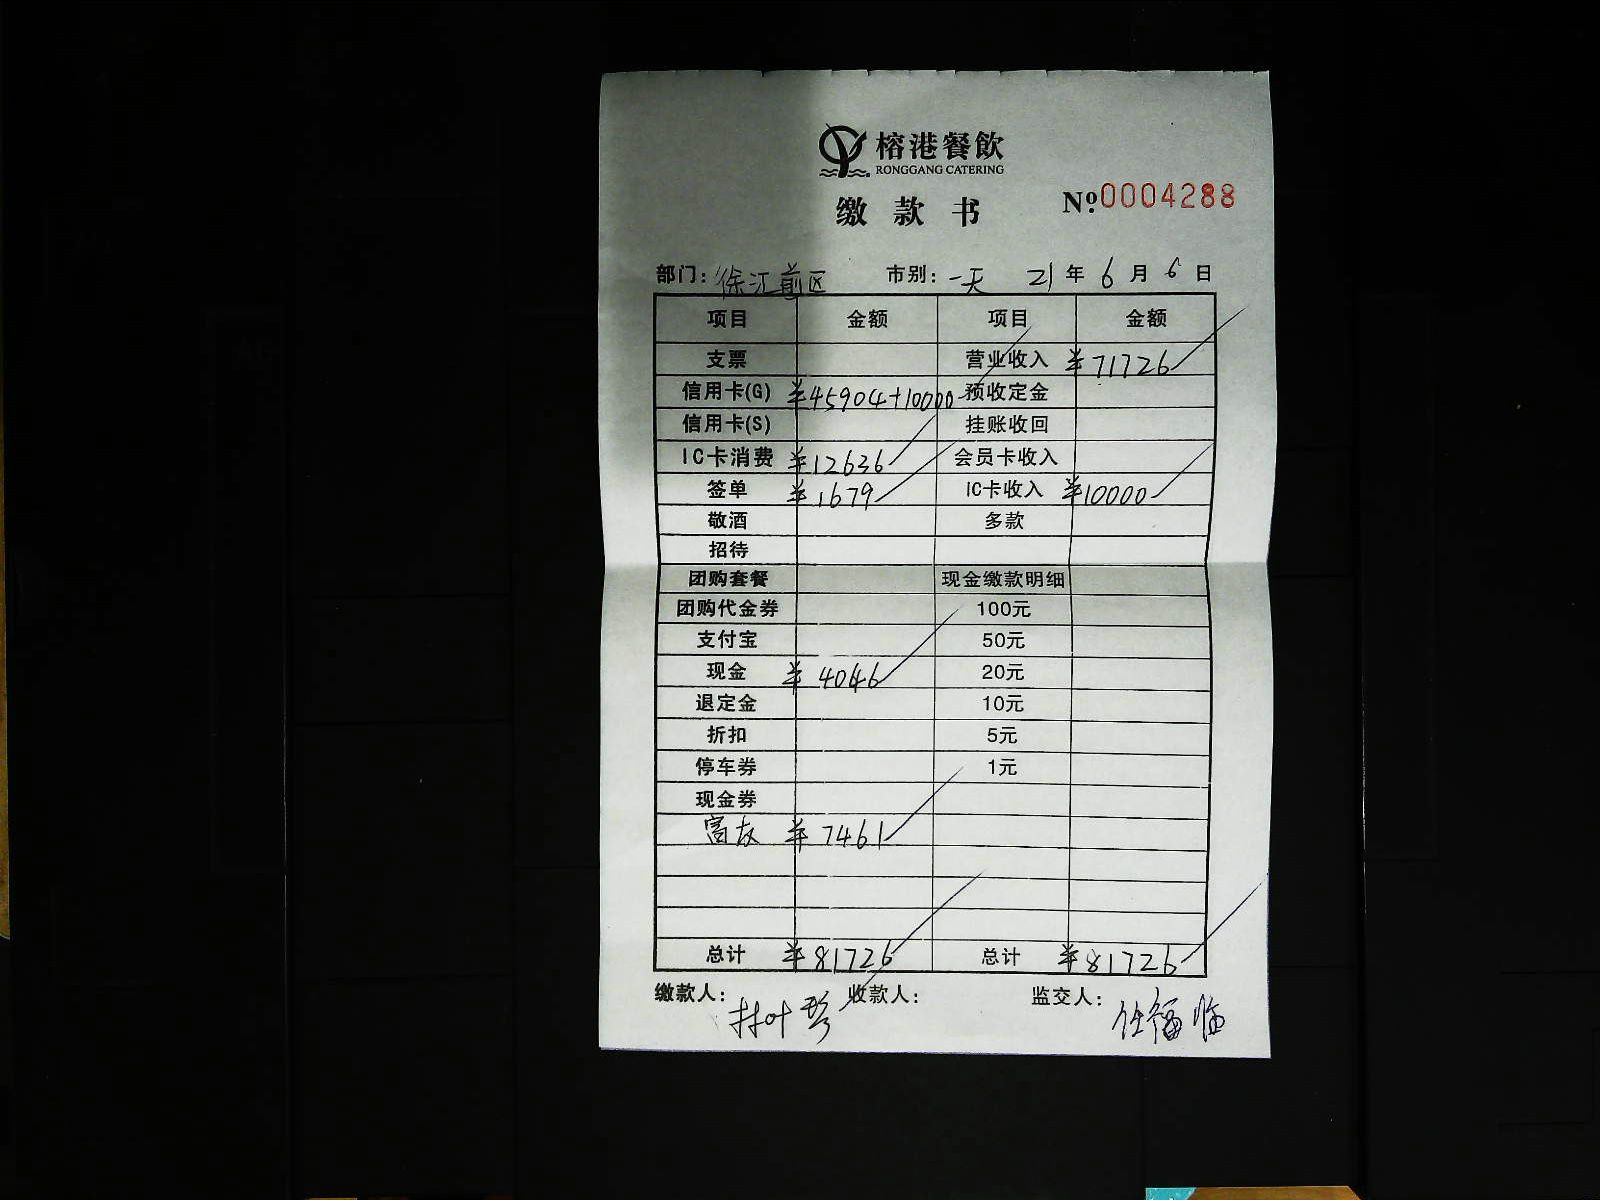 榕港餐飲
RONGGANG CATERING
缴款书 Nº:0004288
部门:徐江前区 市别:一天 21年6月6日
项目 金额 项目 金额
支票 营业收入 ¥71726
信用卡(G) ¥45904+10000 预收定金
信用卡(S) 挂账收回
IC卡消费 ¥12636 会员卡收入
签单 ¥1679 IC卡收入 ¥10000
敬酒 多款
招待
团购套餐 现金缴款明细
团购代金券 100元
支付宝 50元
现金 ¥4046 20元
退定金 10元
折扣 5元
停车券 1元
现金券
富友 ¥7461
总计 ¥81726 总计 ¥81726
缴款人:林叶 收款人: 监交人:任福临